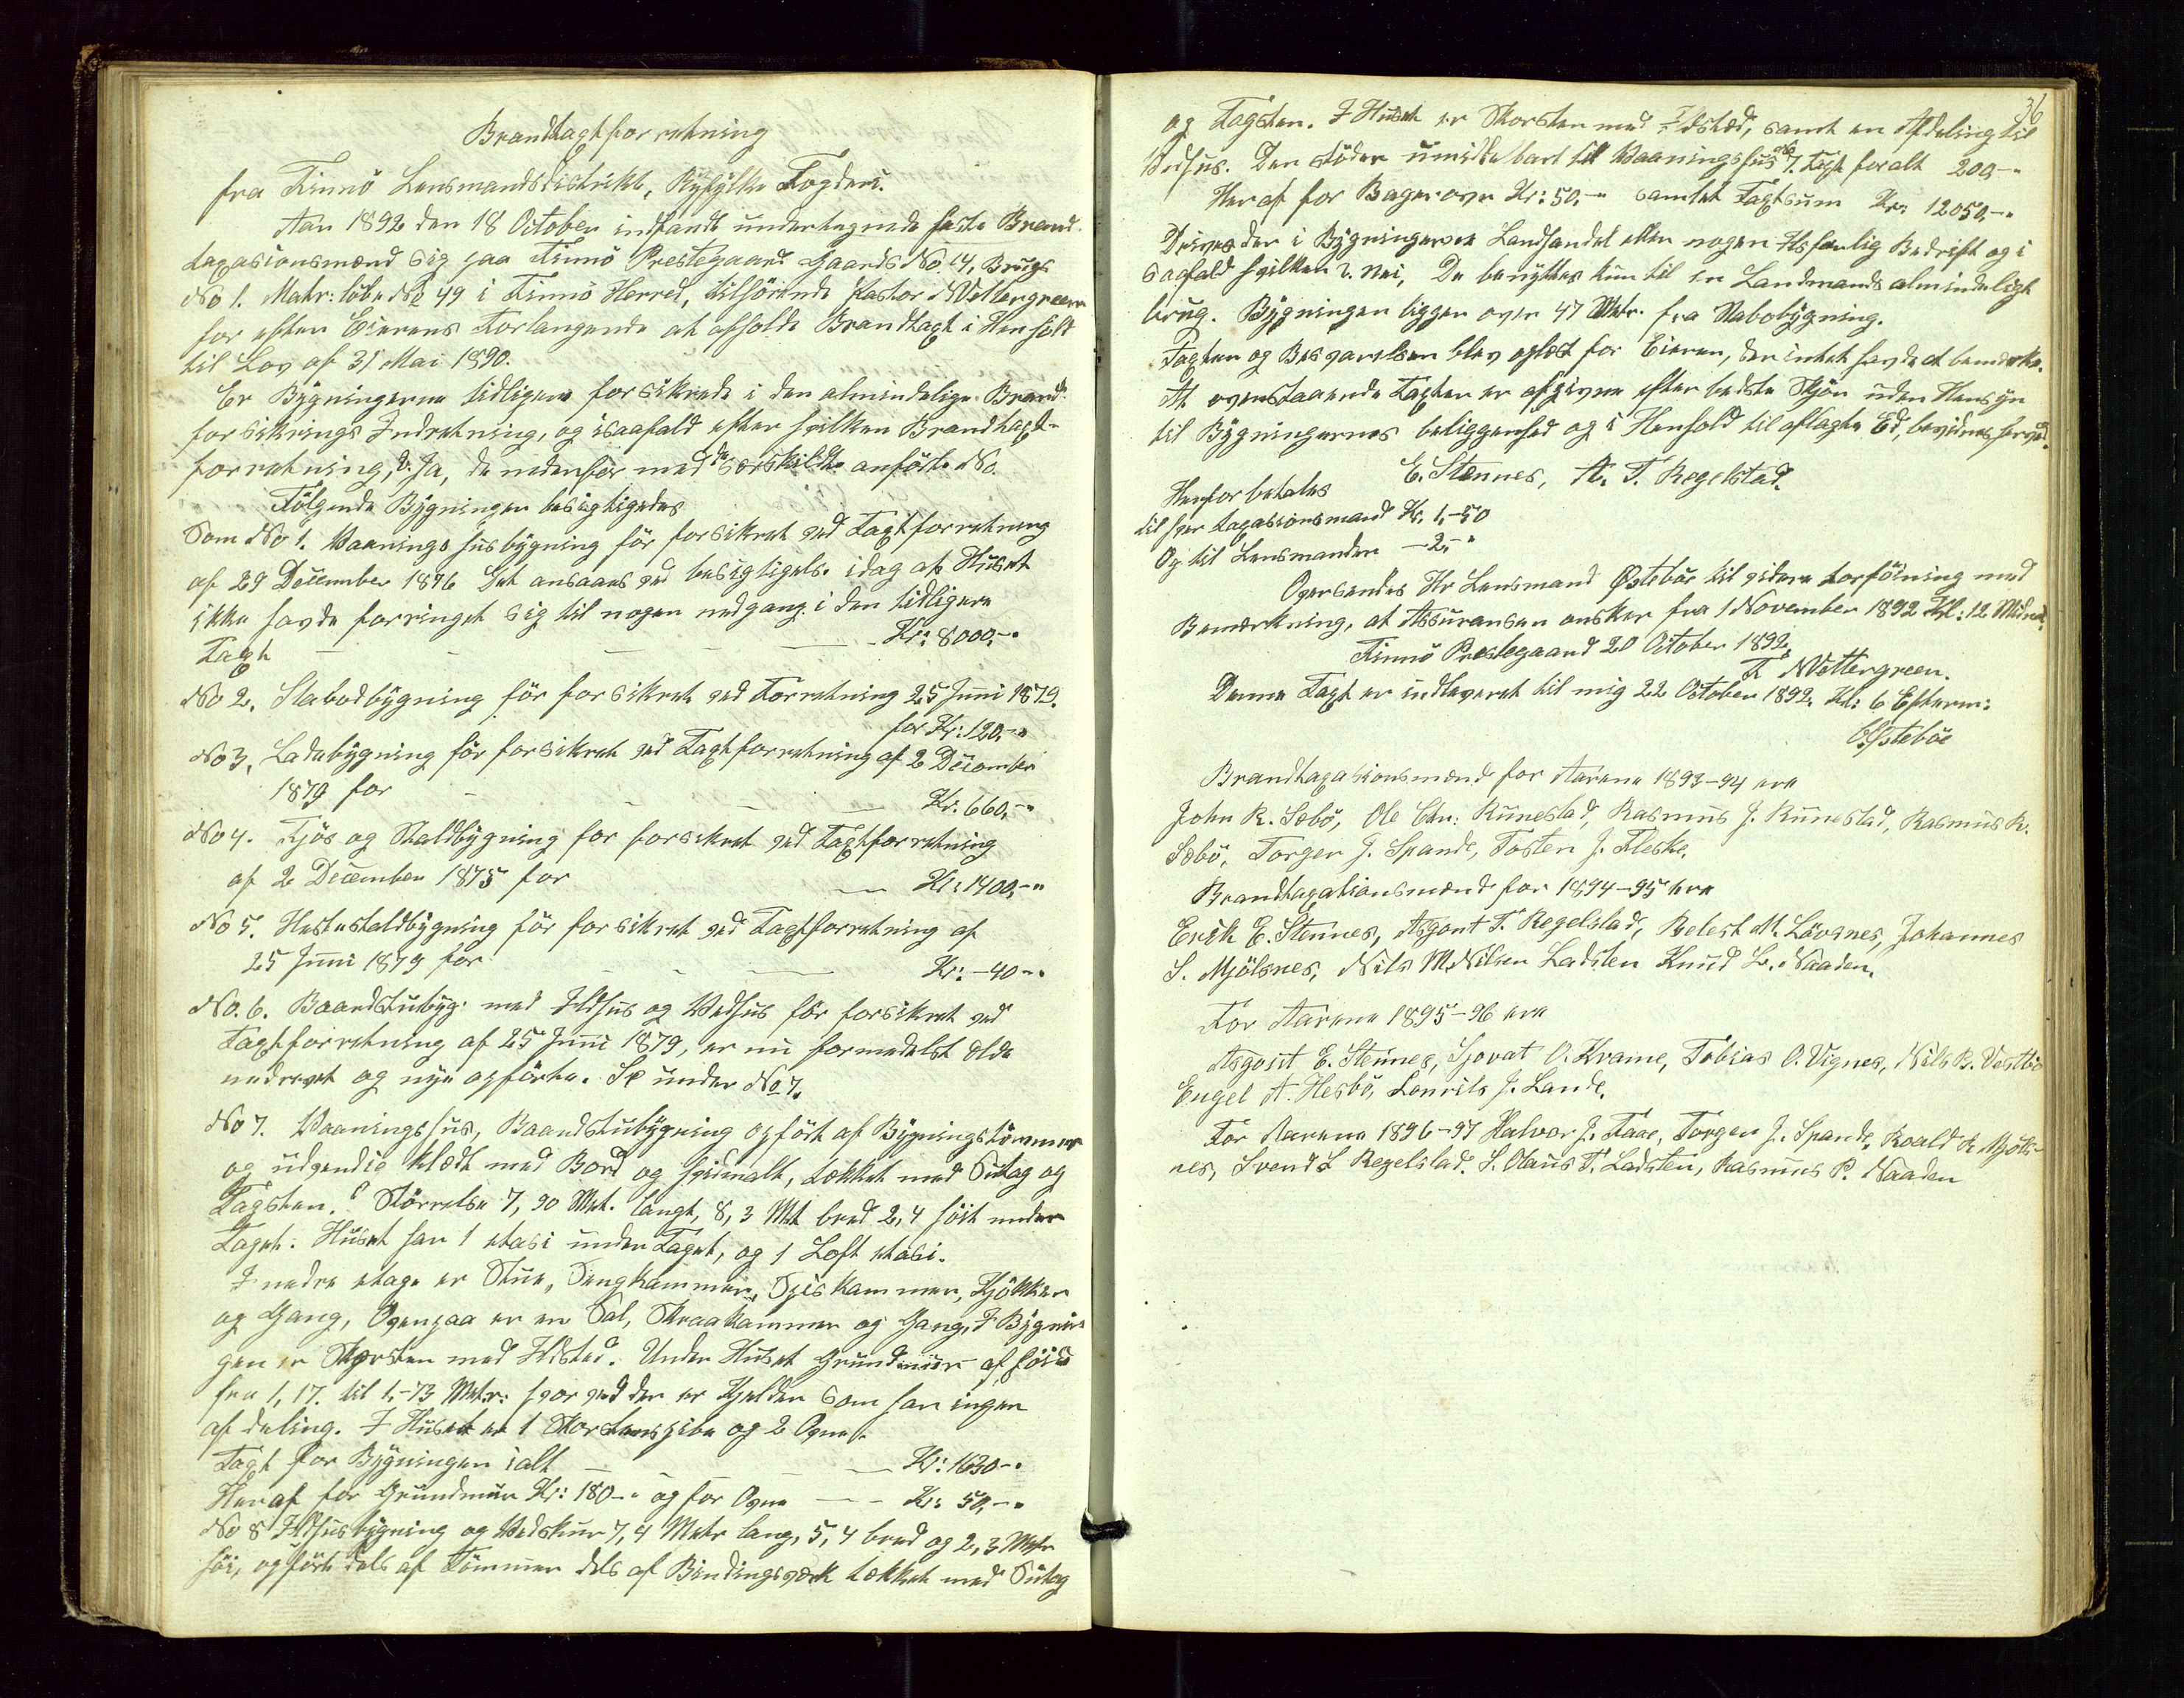 Brandtaxtforretning
fra Finnö Lensmandsdistrikt, Ryfylke Fogderi.
Aar 1892 den 18 October indfandt undertegnede faste Brand-
taxasionsmænd sig paa Finnö Prestegaard Gaards No. 14, Brugs
No 1. Matr: løbe No 49 i Finnö Herred, tilhörende Pastor N Wettergreen
for efter Eierens Forlangende at afholde Brandtaxt i Henhold
til Lov af 31 Mai 1890.
Er Bygningerne tidligere forsikrede i den almindelige Brand-
forsikrings Indretning, og isaafald efter hvilken Brandtaxt-
forretning, S. Ja, de nedenfor med de særskildte anförte No.
Fölgende Bygninger besigtigedes
Som No 1. Vaaningshusbygning för forsikret ved Taxtforretning
af 29 December 1876 Det ansaaes ved besigtigelse idag at Huset
ikke havde forringet sig til nogen nedgang i den tidligere
Taxt — — — — Kr: 8000,-"
No 2. Stabodbygning för forsikret ved Forretning 25 Juni 1879.
for Kr: 120,-"
No 3. Ladebygning för forsikret ved Taxtforretning af 2 December
1879 for — — — Kr. 660,-"
No 4. Fjös og Staldbygning for forsikret ved Taxtforretning
af 2 December 1875 for — Kr: 1400,-"
No 5. Hestestaldbygning för forsikret ved Taxtforretning af
25 Juni 1879 for — — — Kr: -40-"
No. 6. Baandstubyg: med Ildhus og Vedhus för forsikret ved
Taxtforretning af 25 Juni 1879, er nu formedelst Elde
nedrevet og nye opförte. Se under No 7.
No 7. Vaaningshus, Baandstubygning opfört af Bygningstömmer
og udvendig klædt med Bord og hvidmalt, tækket med Sutag og
Tagsten. Störrelse 7,90 Met. langt, 8,3 Mt bred 2,4 höit under
Taget. Huset har 1 etasi under Taget, og 1 Loft etasi.
I nedre etage er Stue, Sengkammer, Spiskammer, Kjökken
og Gang, Ovenpaa er en Sal, Skraakammer og Gang, I Bygnin-
gen er Skorsten med Ildsted. Under Huset Grundmur af höide
fra 1,17. til 1,-73 Metr: hvorved der er Kjelder som har ingen
afdeling. I Huset er 1 Skorstenspibe og 2 Ovne.
Taxt for Bygningen ialt — — — Kr: 1630-"
Heraf for Grundmur Kr: 180-" og for Ovne — — Kr: 50,-"
No 8 Ildhusbygning og Vedskur 7,4 Metr lang, 5,4 bred og 2,3 Metr
höi, opfört dels af Tömmer dels af Bindingsværk tækket med Sutag
36
og Tagsten. I Huset er Skorsten med Ildsted, samt en Afdeling til
Vedhus. Den stöder umiddelbart til Vaaningshus No 7. Taxt foralt 200-"
Heraf for Bagerovn Kr: 50.-" samlet Taxtsum Kr: 12050,-"
Drives der i Bygningerne Landhandel eller nogen Ildsfarlig Bedrift og i
saafald hvilken S. Nei, De benyttes kun til en Landmands almindeligt
brug. Bygningen ligger over 47 Metr. fra Nabobygning.
Taxten og Besvarelsen blev oplæst for Eieren, der intet havde at bemærke.
At ovenstaaende Taxter er afgivne efter bedste Skjön uden Hensyn
til Bygningernes beliggenhed og i Henhold til aflagte Ed, bevidnes herved.
E. Stennes, A. T. Regelstad.
Herfor betales
til hver taxasionsmand Kr. 1,-50
Og til Lensmanden — 2,-"
Oversendes Hr Lensmand Østebö til videre torföining med
Bemærkning, at Assuransen önskes fra 1 November 1892 Kl: 12 Midnat.
Finnö Prestegaard 20 October 1892.
N Wettergreen.
Denne Taxt er indleveret til mig 22 October 1892. Kl: 6 Efterm:
Østeböe
Brandtaxasionsmænd for Aarene 1893-94 ere
John R. Sebö, Ole Chr: Runestad, Rasmus J. Runestad, Rasmus R.
Sebö, Torger J. Spande, Tosten J. Fleske.
Brandtaxationsmænd for 1894-95 ere
Erik E. Stennes, Asgout T. Regelstad, Peder M. Lövsnes, Johannes
S. Mjölsnes, Nils M. Nilsen Ladsten Knud L. Naaden.
For Aarene 1895-96 ere
Asgout E. Stennes, Sjovat O. Kvame, Tobias O. Vignes, Nils B. Vestbö
Engel A. Hesbö, Lourits J. Lande.
For Aarene 1896-97 Halvor J. Faae, Torger J. Spande, Roald R Mjöls-
nes, Svend L Regelstad. S. Olaus T. Ladsten, Rasmus P. Naaden